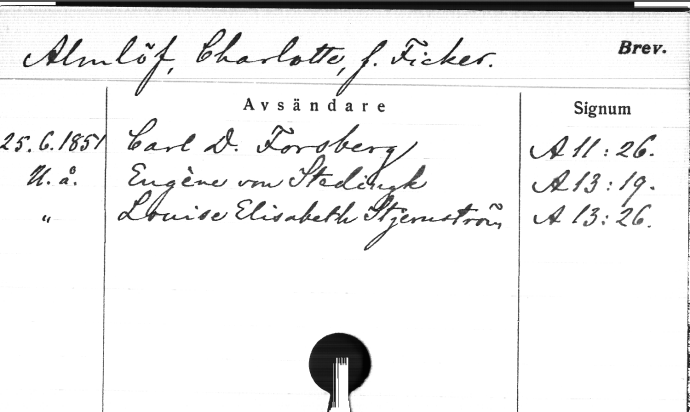 Almlöf, Charlotte, f. Ficker. Brev.
Avsändare Signum
25.6.1851 Carl D. Forsberg A 11:26.
U. å. Eugène von Stedingk A 13:19.
" Louise Elisabeth Stjernström A 13:26.